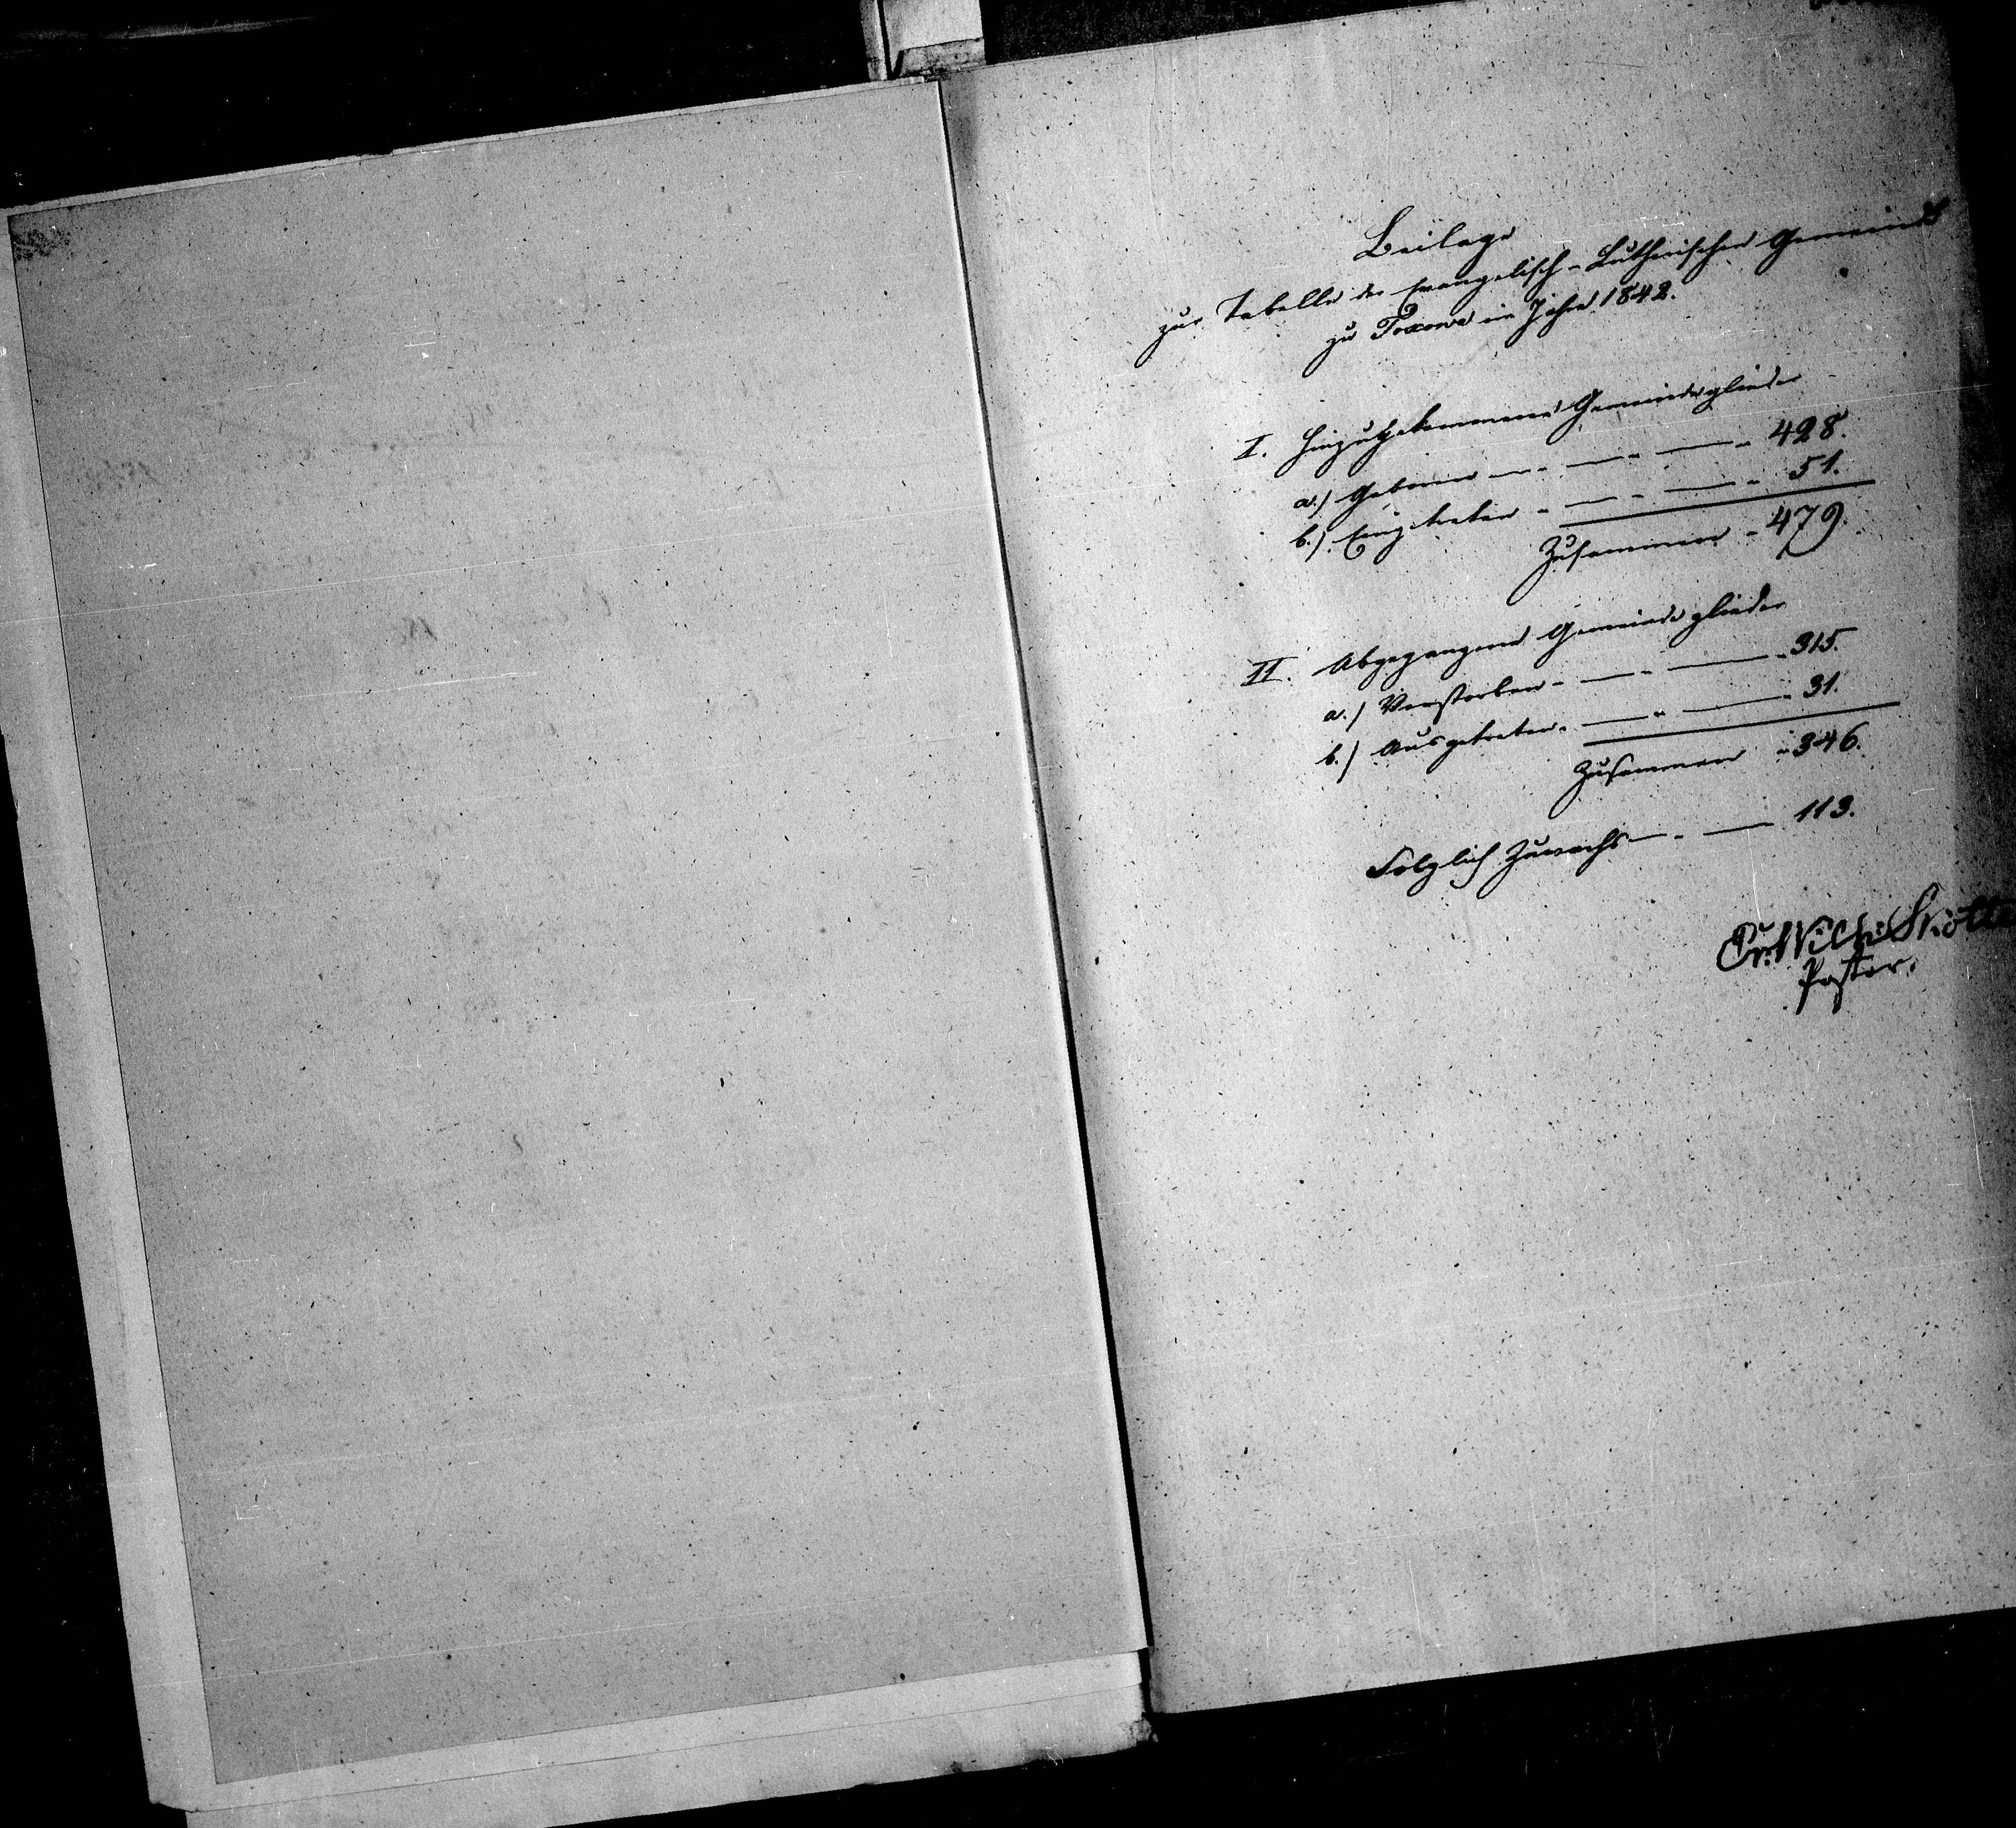 Beilage
zur Tabelle der Evangelisch-Lutherischen Gemeinde
zu Toxowa im Jahre 1842.
I. Hinzugekommene Gemeindeglieder
a.) Geboren — 428.
b.) Eingetreten — 51.
Zusammen — 479.
II. Abgegangene Gemeindeglieder
a.) Verstorben — 315.
b.) Ausgetreten — 31.
Zusammen — 346.
Folglich Zuwachs — 113.
Pastor.